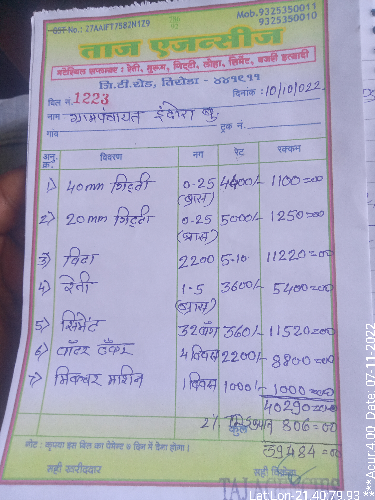 GST No.: 27AAIFT7582N1Z9
Mob.9325350011
9325350010
ताज एजन्सीज
मटेरियल सप्लायर : रेती, मुरूम, गिट्टी, लोहा, सिमेंट, बजरी इत्यादी
जि.टी.रोड, तिरोडा - ४४१९११
बिल नं. 1223 दिनांक : 10/10/022
नाम - ग्रामपंचायत इंदोरा बु.
गांव ट्रक नं.
अनु. क्र. विवरण नग रेट रक्कम
1) 40mm गिट्टी 0-25 4400/- 1100=00
(ब्रास)
2) 20mm गिट्टी 0-25 5000/- 1250=00
(ब्रास)
3) विटा 2200 5-10 11220=00
4) रेती 1-5 3600/- 5400=00
(ब्रास)
5) सिमेंट 32 बॅग 360/- 11520=00
6) वॉटर टँकर 4 दिवस 2200/- 8800=00
7) मिक्चर मशिन 1 दिवस 1000/- 1000=00
40290=00
2% 806=00
39484=00
नोट : कृपया इस बिल का पेमेन्ट 8 दिन में देना होगा।
सही खरीददार सही विक्रेता
Lat Lon-21.40:79.93 ***Acur:4.00 Date: 07-11-2022